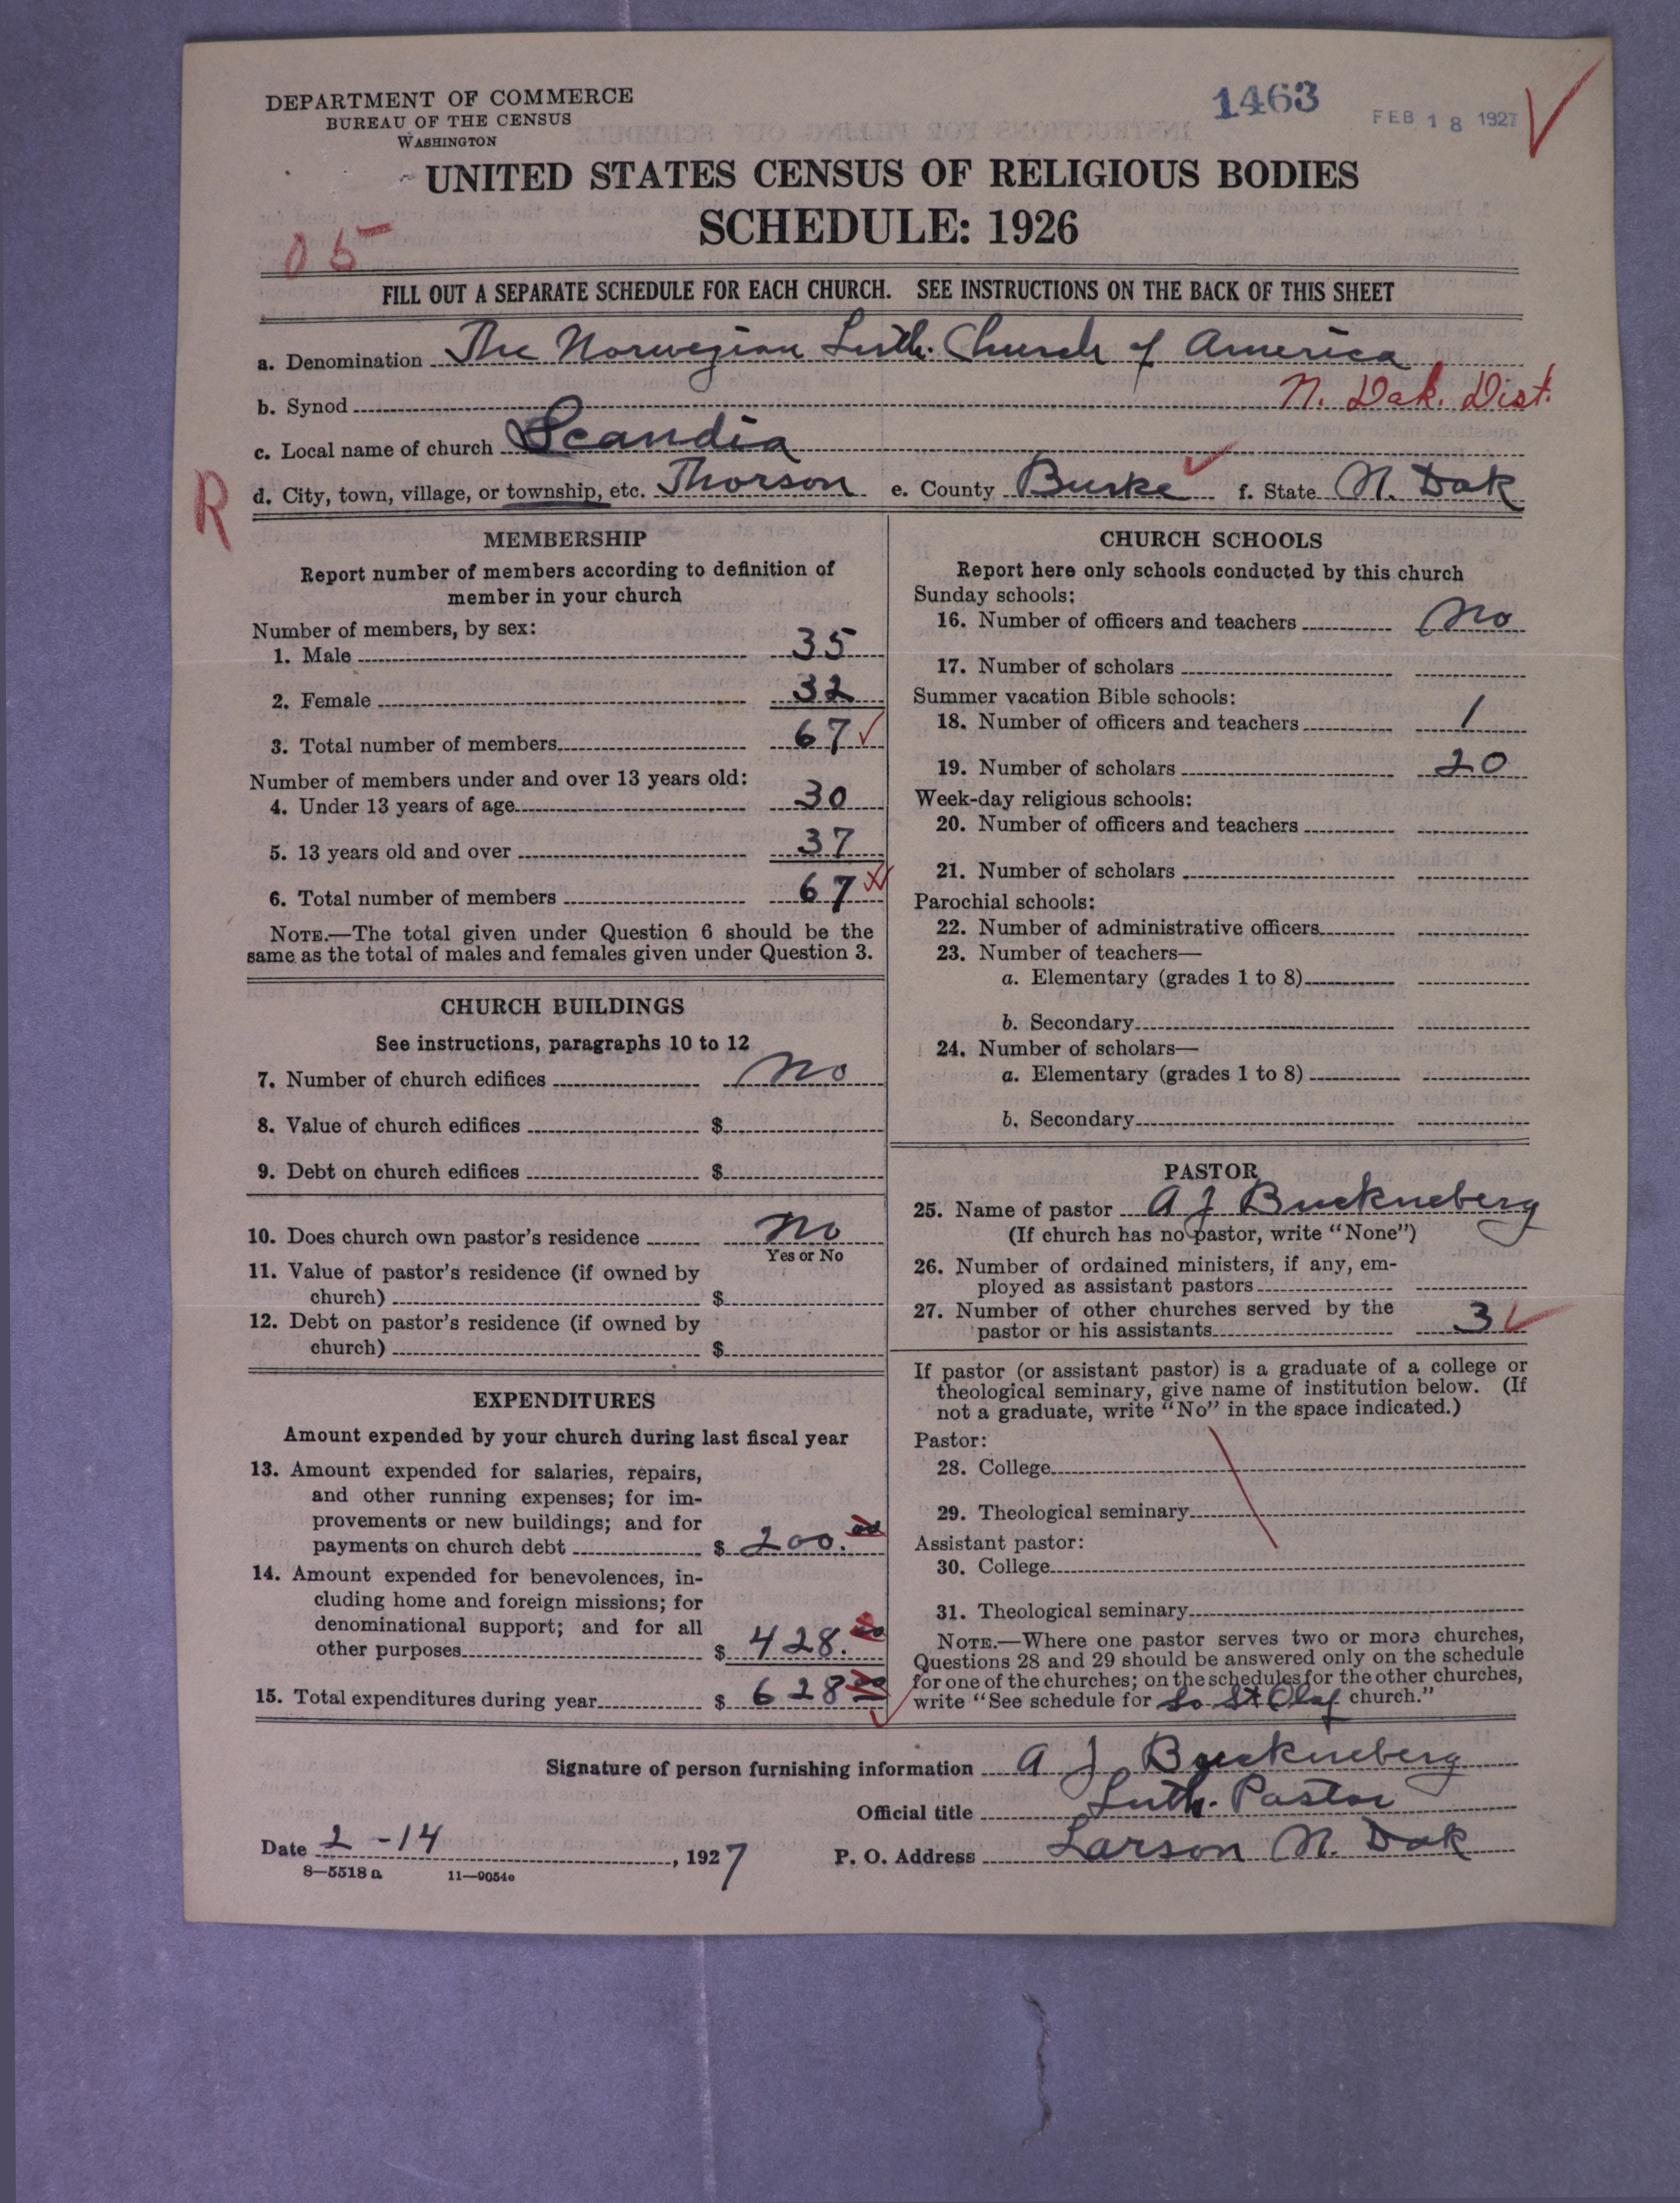 DEPARTMENT OF COMMERCE
BUREAU OF THE CENSUS
WASHINGTON
1463
FEB 18 1927
UNITED STATES CENSUS OF RELIGIOUS BODIES
SCHEDULE: 1926
05
FILL OUT A SEPARATE SCHEDULE FOR EACH CHURCH. SEE INSTRUCTIONS ON THE BACK OF THIS SHEET
a. Denomination The Norwegian Luth. Church of America
b. Synod N. Dak. Dist.
c. Local name of church Scandia
R
d. City, town, village, or township, etc. Thorson e. County Burke f. State N. Dak
MEMBERSHIP
Report number of members according to definition of
member in your church
Number of members, by sex:
1. Male 35
2. Female 32
3. Total number of members 67
Number of members under and over 13 years old:
4. Under 13 years of age 30
5. 13 years old and over 37
6. Total number of members 67
NOTE.—The total given under Question 6 should be the
same as the total of males and females given under Question 3.
CHURCH BUILDINGS
See instructions, paragraphs 10 to 12
7. Number of church edifices no
8. Value of church edifices $
9. Debt on church edifices $
10. Does church own pastor's residence no
Yes or No
11. Value of pastor's residence (if owned by
church) $
12. Debt on pastor's residence (if owned by
church) $
EXPENDITURES
Amount expended by your church during last fiscal year
13. Amount expended for salaries, repairs,
and other running expenses; for im-
provements or new buildings; and for
payments on church debt $ 200.00
14. Amount expended for benevolences, in-
cluding home and foreign missions; for
denominational support; and for all
other purposes $ 428.00
15. Total expenditures during year $ 628 00
CHURCH SCHOOLS
Report here only schools conducted by this church
Sunday schools:
16. Number of officers and teachers no
17. Number of scholars
Summer vacation Bible schools:
18. Number of officers and teachers 1
19. Number of scholars 20
Week-day religious schools:
20. Number of officers and teachers
21. Number of scholars
Parochial schools:
22. Number of administrative officers
23. Number of teachers—
a. Elementary (grades 1 to 8)
b. Secondary
24. Number of scholars—
a. Elementary (grades 1 to 8)
b. Secondary
PASTOR
25. Name of pastor A J Buckneberg
(If church has no pastor, write "None")
26. Number of ordained ministers, if any, em-
ployed as assistant pastors
27. Number of other churches served by the
pastor or his assistants 3
If pastor (or assistant pastor) is a graduate of a college or
theological seminary, give name of institution below. (If
not a graduate, write "No" in the space indicated.)
Pastor:
28. College
29. Theological seminary
Assistant pastor:
30. College
31. Theological seminary
NOTE.—Where one pastor serves two or more churches,
Questions 28 and 29 should be answered only on the schedule
for one of the churches; on the schedules for the other churches,
write "See schedule for So St Olaf church."
Signature of person furnishing information A J Buckneberg
Official title Luth. Pastor
Date 2-14, 1927 P. O. Address Larson N. Dak
8—5518 a 11—9054c